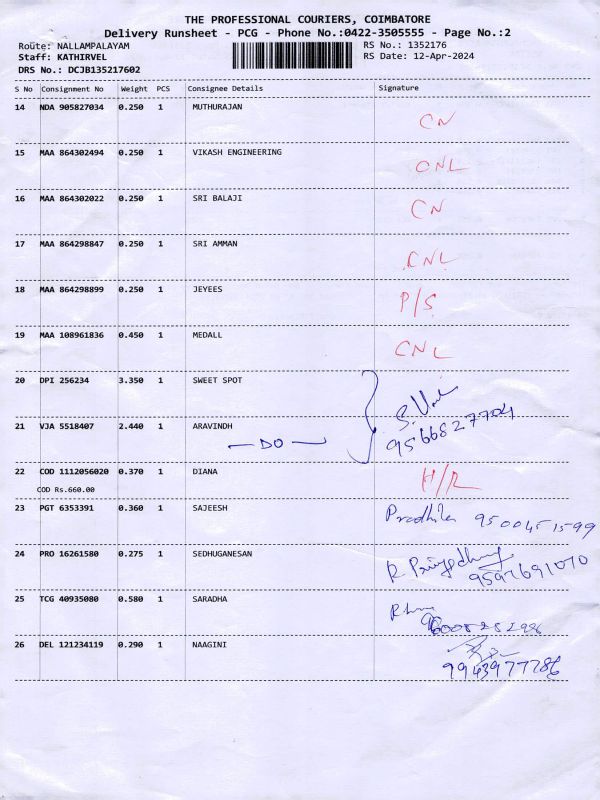 THE PROFESSIONAL COURIERS, COIMBATORE
Delivery Runsheet - PCG - Phone No.:0422-3505555 - Page No.:2
Route: NALLAMPALAYAM RS No.: 1352176
Staff: KATHIRVEL RS Date: 12-Apr-2024
DRS No.: DCJB135217602
S No Consignment No Weight PCS Consignee Details Signature
14 NDA 905827034 0.250 1 MUTHURAJAN CN
15 MAA 864302494 0.250 1 VIKASH ENGINEERING CNL
16 MAA 864302022 0.250 1 SRI BALAJI CN
17 MAA 864298847 0.250 1 SRI AMMAN CNL
18 MAA 864298899 0.250 1 JEYEES P/S
19 MAA 108961836 0.450 1 MEDALL CNL
20 DPI 256234 3.350 1 SWEET SPOT
21 VJA 5518407 2.440 1 ARAVINDH 9566827704
— DO —
22 COD 1112056020 0.370 1 DIANA H/R
COD Rs.660.00
23 PGT 6353391 0.360 1 SAJEESH 9500451599
24 PRO 16261580 0.275 1 SEDHUGANESAN 9597691070
25 TCG 40935080 0.580 1 SARADHA
26 DEL 121234119 0.290 1 NAAGINI 9943977786